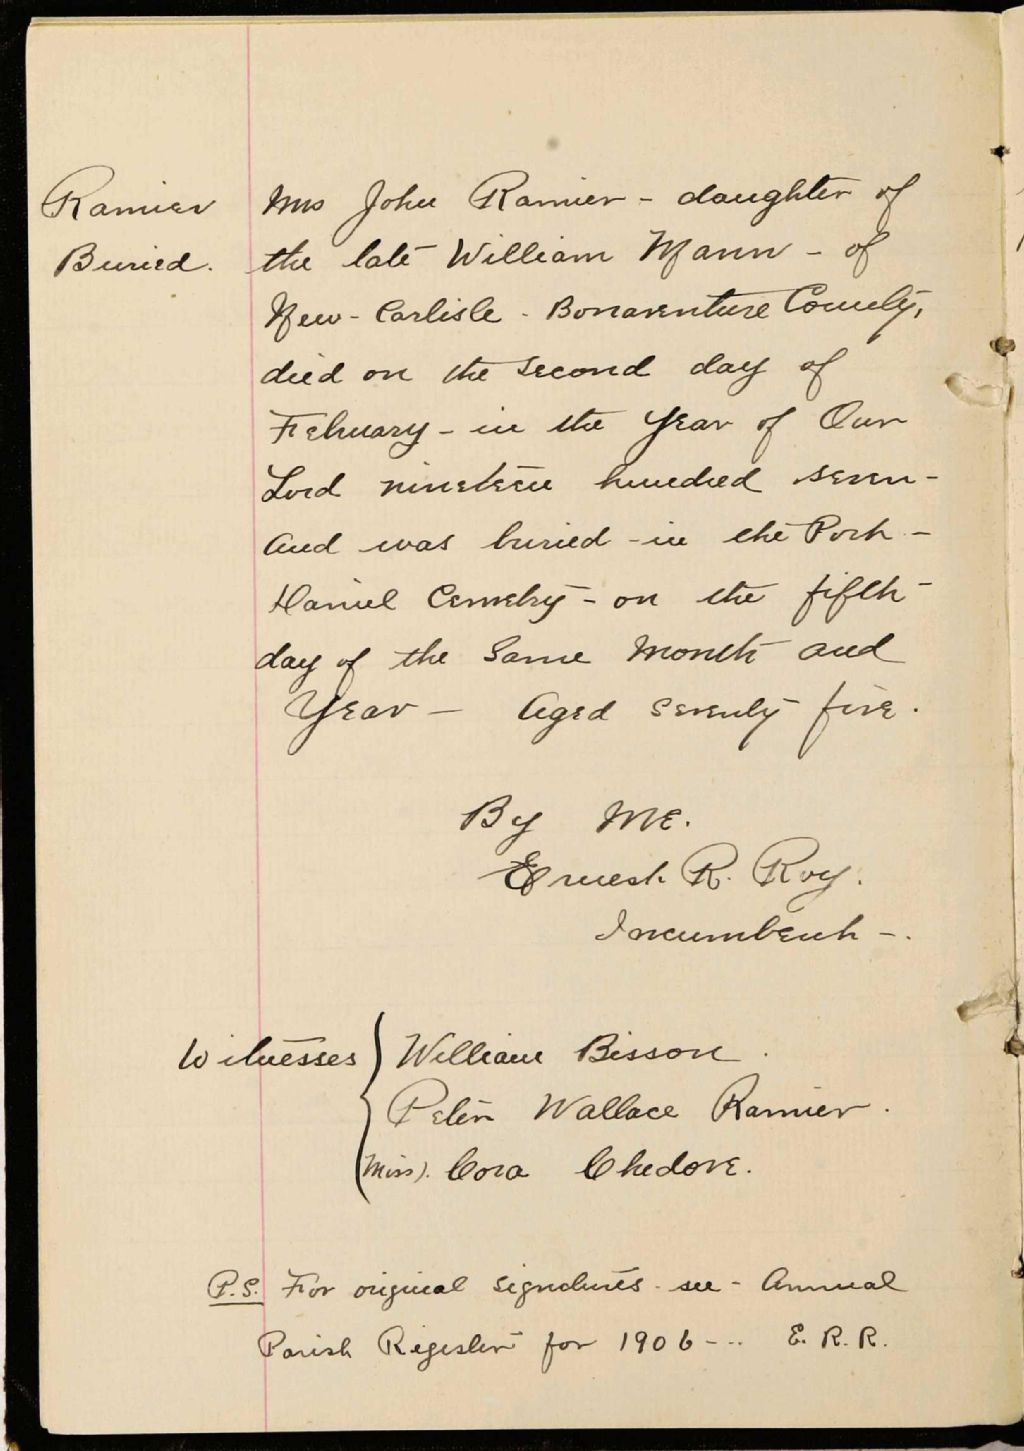 Ramier
Buried.
Mrs John Ramier - daughter of
the late William Mann - of
New - Carlisle - Bonaventure County,
died on the second day of
February - in the Year of Our
Lord nineteen hundred seven -
And was buried - in the Port -
Daniel Cemetry - on the fifth -
day of the Same Month and
Year — Aged Seventy five.
By Me.
Ernest R. Roy.
Incumbent -.
Witnesses
William Bisson.
Peter Wallace Ramier.
(Miss). Cora Chedore.
P.S. For original signatures - see - Annual
Parish Register for 1906 - .. E. R. R.